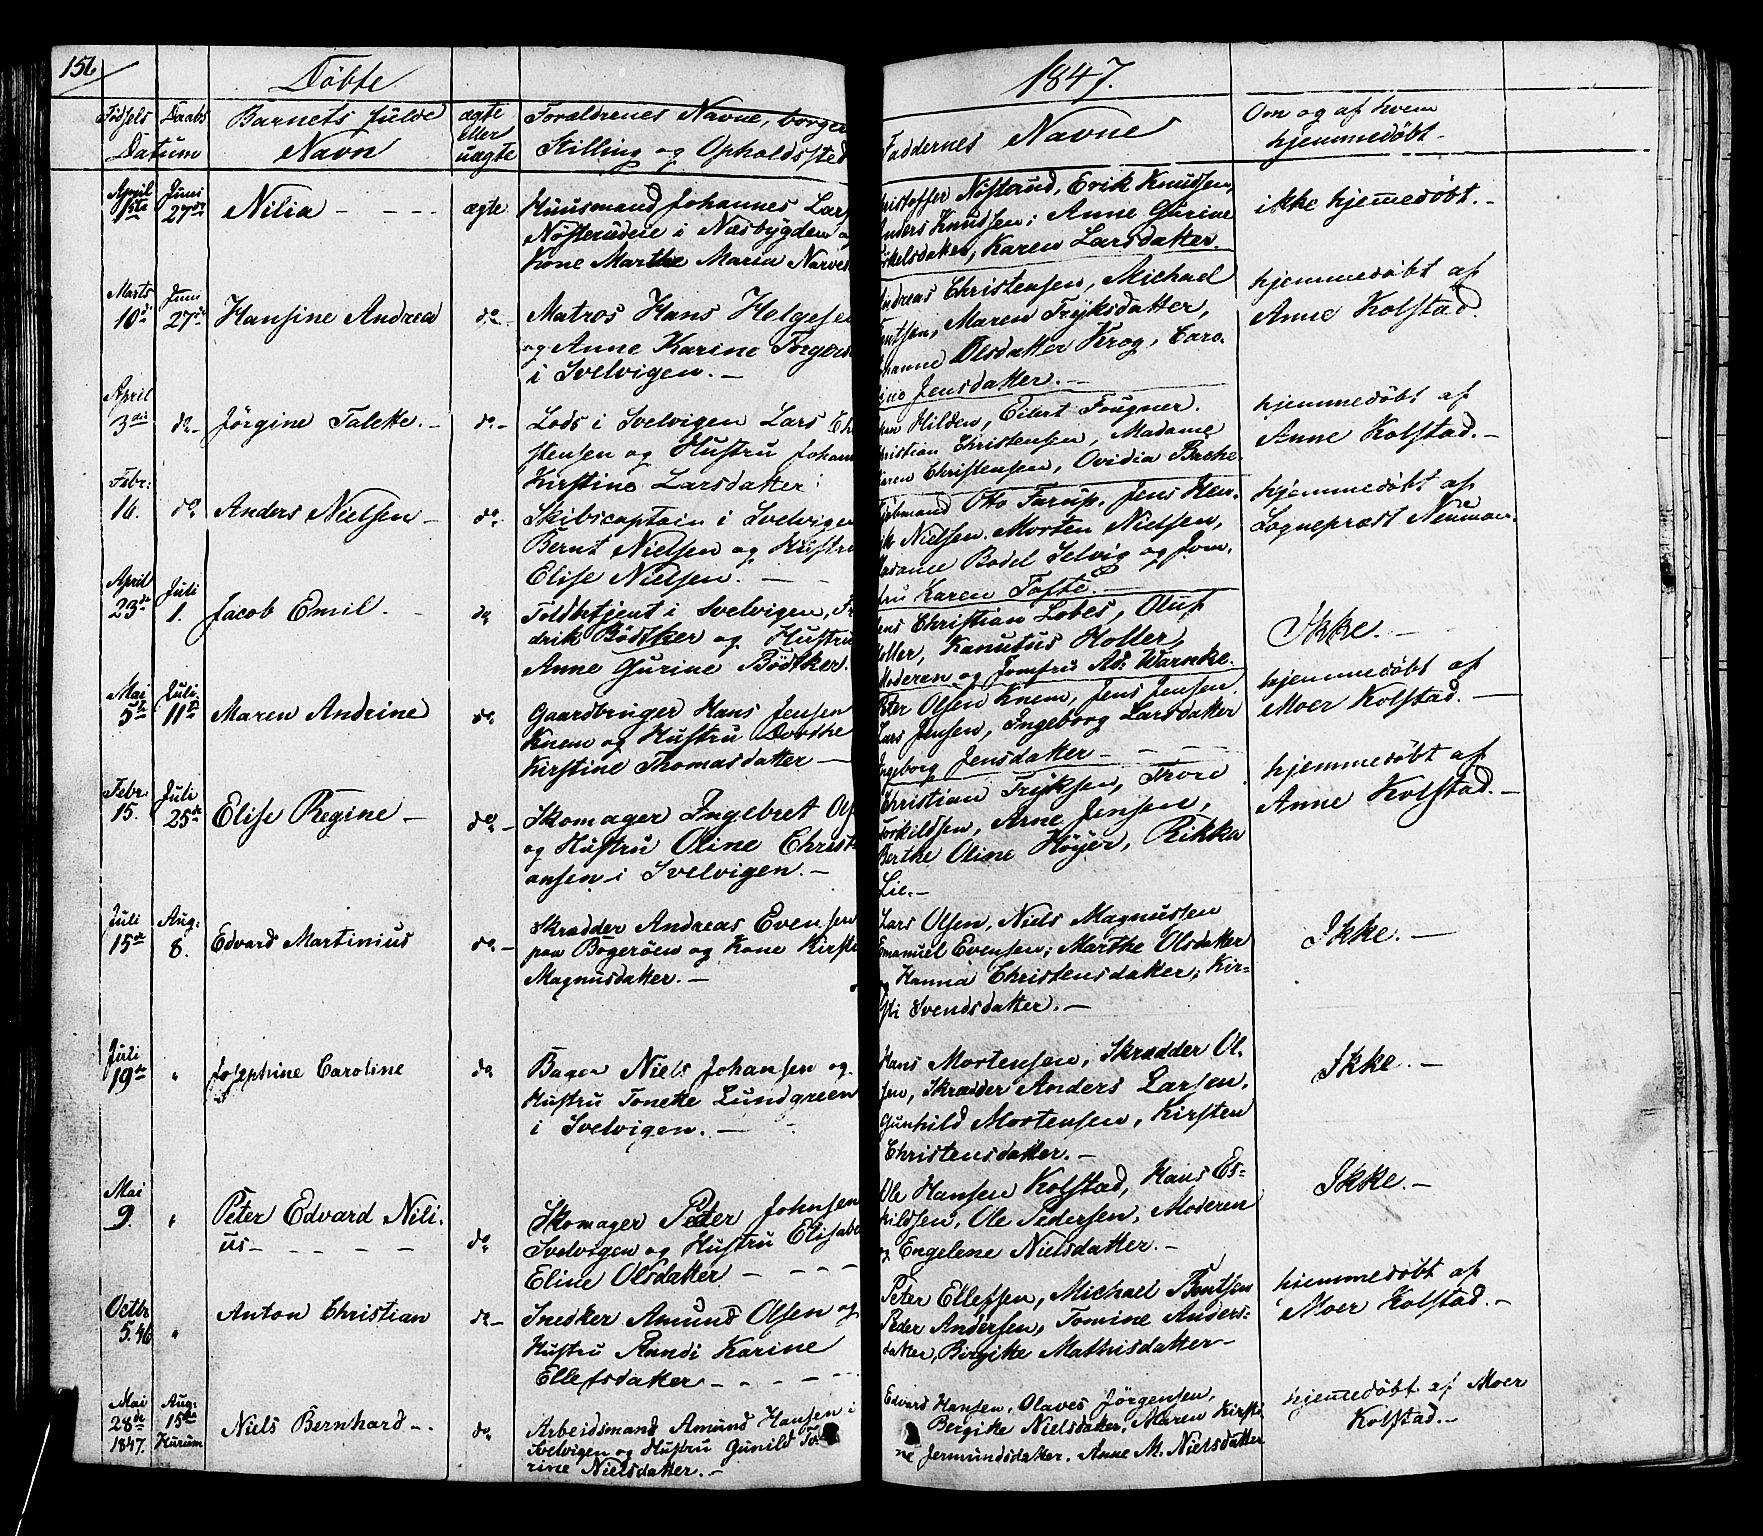 156
Døbte
1847.
Fødsels Daabs Barnets fulde ægte Forældrenes Navne, borger
Datum Navn eller uægte Stilling og Opholdssted
Faddernes Navne
Om og af hvem
hjemmedøbt.
April 1ste Juni 27de Nilia - - - - ægte Huusmand Johannes Lars
Nøsterudeie i Næsbygden og
Kone Marthe Maria Narves
ristoffer Nøsterud, Erik Knudsen,
nders Knudsen; Anne Gurine
kelsdatter, Karen Larsdatter.
ikke hjemmedøbt. -
Marts 10de Juni 27de Hansine Andrea do- Matros Hans Helgesen
og Anne Karine Torgers
i Svelvigen. -
ndreas Christensen, Michael
Bentsen, Maren Fryksdatter,
hanne Olsdatter Krog, Caro-
line Jensdatter. -
hjemmedøbt af
Anne Kolstad.
April 3die do- Jørgine Talette. - do- Lods i Svelvigen Lars Ch
stensen og Hustru Johan
Kirstine Larsdatter.
Hilden, Eilert Fougner.
hristian Christensen, Madame
aren Christensen, Ovidia Bache.
hjemmedøbt af
Anne Kolstad. -
Febr. 16. do- Anders Nielsen - do- Skibscaptain i Svelvigen
Bernt Nielsen og Hustru
Elise Nielsen. - -
Otto Farup, Jens Hen-
rik Nielsen. Morten Nielsen,
adame Bodel Selvig og Jom-
fru Karen Tofte. -
hjemmedøbt af
Sognepræst Neuman.
April 23de Juli 1. Jacob Emil. - do Toldbetjent i Svelvigen, Fr
drik Bødtker og Hustru
Anne Gurine Bødtker.
ens Christian Lobes, Oluf
oller, Kanutus Holler,
Moderen og Jomfru Ad: Warnke.
Ikke. -
Mai 5te Juli 11te Maren Andrine do- Gaardbruger Hans Jensen
Knem og Hustru Dorthe
Kirstine Thomasdatter -
Peter Olsen Knem, Jens Jensen.
Lars Jensen, Ingeborg Larsdatter
Ingeborg Jensdatter - - - -
hjemmedøbt af
Moer Kolstad. -
Febr. 15. Juli 25de Elise Regine - do- Skomager Ingebret Ols
og Hustru Oline Christ
ansen i Svelvigen. -
Christian Fryksen, Thore
Torkildsen, Arne Jensen,
Berthe Oline Høyer, Rikka
Lie. -
hjemmedøbt af
Anne Kolstad. -
Juli 15de Aug. 8. Edvard Martinius do- Skrædder Andreas Evensen
paa Bogerøen og Kone Kirsti
Magnusdatter. -
Lars Olsen, Niels Magnussen
Emanuel Evensen; Marthe Olsdatter
og Hanna Christensdatter, Kir-
sti Svendsdatter. -
Ikke. -
Juli 19de " Josephine Caroline do Bager Niels Johansen og
Hustru Tonette Lundgreen
i Svelvigen. -
Hans Mortensen, Skrædder Ol-
sen, Skrædder Anders Larsen,
Gunhild Mortensen, Kirsten
Christensdatter. -
Ikke. -
Mai 9. " Peter Edvard Nili-
us - - - - - do- Skomager Peter Johnsen
Svelvigen og Hustru Elisabe
Eline Olsdatter - - - -
Ole Hansen Kolstad, Hans Es-
kildsen, Ole Pedersen, Moderen
og Engelene Nielsdatter. -
Ikke. -
Octbr 5. 46 " Anton Christian do- Snedker Amund Olsen og
Hustru Randi Karine
Ellefsdatter - - - -
Peter Ellefsen, Michael Bentsen
Peder Andersen, Tomine Anders-
datter, Birgitte Mathisdatter -
hjemmedøbt af
Moer Kolstad. -
Mai 28de 1847. Aug. 15de Hurum Niels Bernhard -. do- Arbeidsmand Amund Hansen i
Svelvigen og Hustru Gunild
rine Nielsdatter. -
Edvard Hansen, Olaves Jørgensen,
Birgitte Nielsdatter, Maren Kirsti
ne Jermundsdatter. Anne M. Nielsdatter
hjemmedøbt af Moer
Kolstad. -